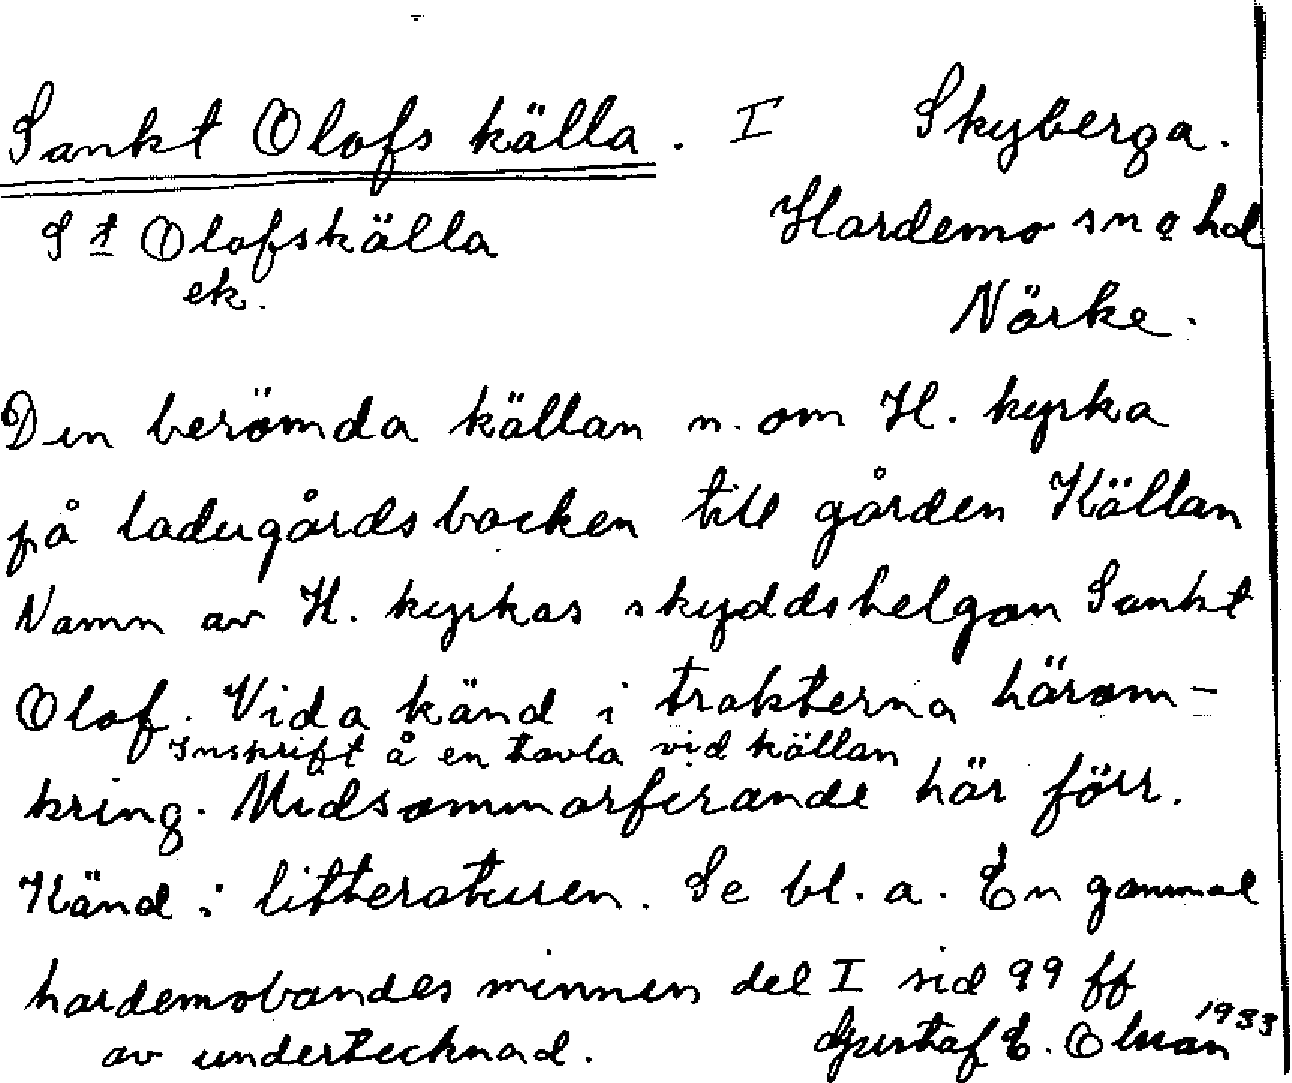 Sankt Olofs källa. I Skyberga.
St Olofskälla Hardemo sn o hd
ek. Närke.
Den berömda källan n. om H. kyrka
på ladugårdsbacken till gården Källan
Namn av H. kyrkas skyddshelgon Sankt
Olof. Vida känd i trakterna härom-
Inskrift å en tavla vid källan
kring. Midsommarfirande här förr.
Känd i litteraturen. Se bl. a. En gammal
hardemobondes minnen del I sid 99 ff
av undertecknad. Gustaf E. 1933